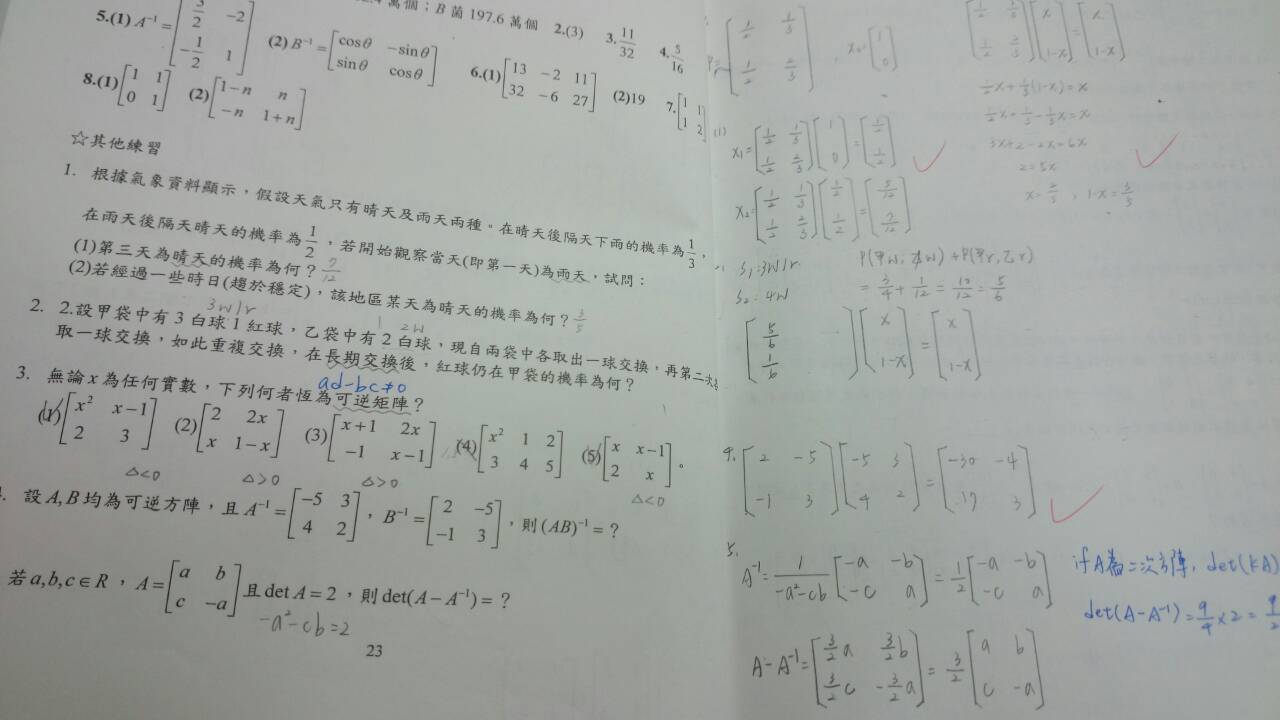 萬個；B 菌 197.6 萬個 2.(3) 3. 11/32 4. 5/16
5.(1) A⁻¹ = [3/2 -2; -1/2 1] (2) B⁻¹ = [cosθ -sinθ; sinθ cosθ] 6.(1) [13 -2 11; 32 -6 27] (2)19 7. [1 1; 1 2]
8.(1) [1 1; 0 1] (2) [1-n n; -n 1+n]
☆其他練習
1. 根據氣象資料顯示，假設天氣只有晴天及雨天兩種。在晴天後隔天下雨的機率為 1/3，
在雨天後隔天晴天的機率為 1/2，若開始觀察當天(即第一天)為雨天，試問：
(1)第三天為晴天的機率為何？ 7/12
(2)若經過一些時日(趨於穩定)，該地區某天為晴天的機率為何？ 3/5
3W1r
1 2W
2. 2.設甲袋中有 3 白球 1 紅球，乙袋中有 2 白球，現自兩袋中各取出一球交換，再第二次
取一球交換，如此重複交換，在長期交換後，紅球仍在甲袋的機率為何？
ad-bc≠0
3. 無論 x 為任何實數，下列何者恆為可逆矩陣？
(1) [x² x-1; 2 3] (2) [2 2x; x 1-x] (3) [x+1 2x; -1 x-1] (4) [x² 1 2; 3 4 5] (5) [x x-1; 2 x]。
△<0 △>0 △>0 △<0
設 A, B 均為可逆方陣，且 A⁻¹ = [-5 3; 4 2]，B⁻¹ = [2 -5; -1 3]，則 (AB)⁻¹ = ？
若 a,b,c∈R，A = [a b; c -a] 且 det A = 2，則 det(A-A⁻¹) = ？
-a²-cb=2
23
[1/2 1/3; 1/2 2/3], x₀ [1; 0]
(1)
x₁= [1/2 1/3; 1/2 2/3] [1; 0] = [1/2; 1/2]
x₂= [1/2 1/3; 1/2 2/3] [1/2; 1/2] = [5/12; 7/12]
[1/2 1/3; 1/2 2/3] [x; 1-x] = [x; 1-x]
1/2x+1/3(1-x)=x
1/2x+1/3-1/3x=x
3x+2-2x=6x
2=5x
x=2/5, 1-x=3/5
S₁:3W1r
S₂:4W
P(甲W, 乙W)+P(甲r, 乙r)
=3/4+1/12=10/12=5/6
[5/6; 1/6] [x; 1-x] = [x; 1-x]
4. [2 -5; -1 3] [-5 3; 4 2] = [-30 -4; 17 3]
5.
A⁻¹= 1/(-a²-cb) [-a -b; -c a] = 1/2 [-a -b; -c a]
A-A⁻¹= [3/2a 3/2b; 3/2c -3/2a] = 3/2 [a b; c -a]
if A為二次方陣, det(kA)
det(A-A⁻¹)=9/4×2=9/2